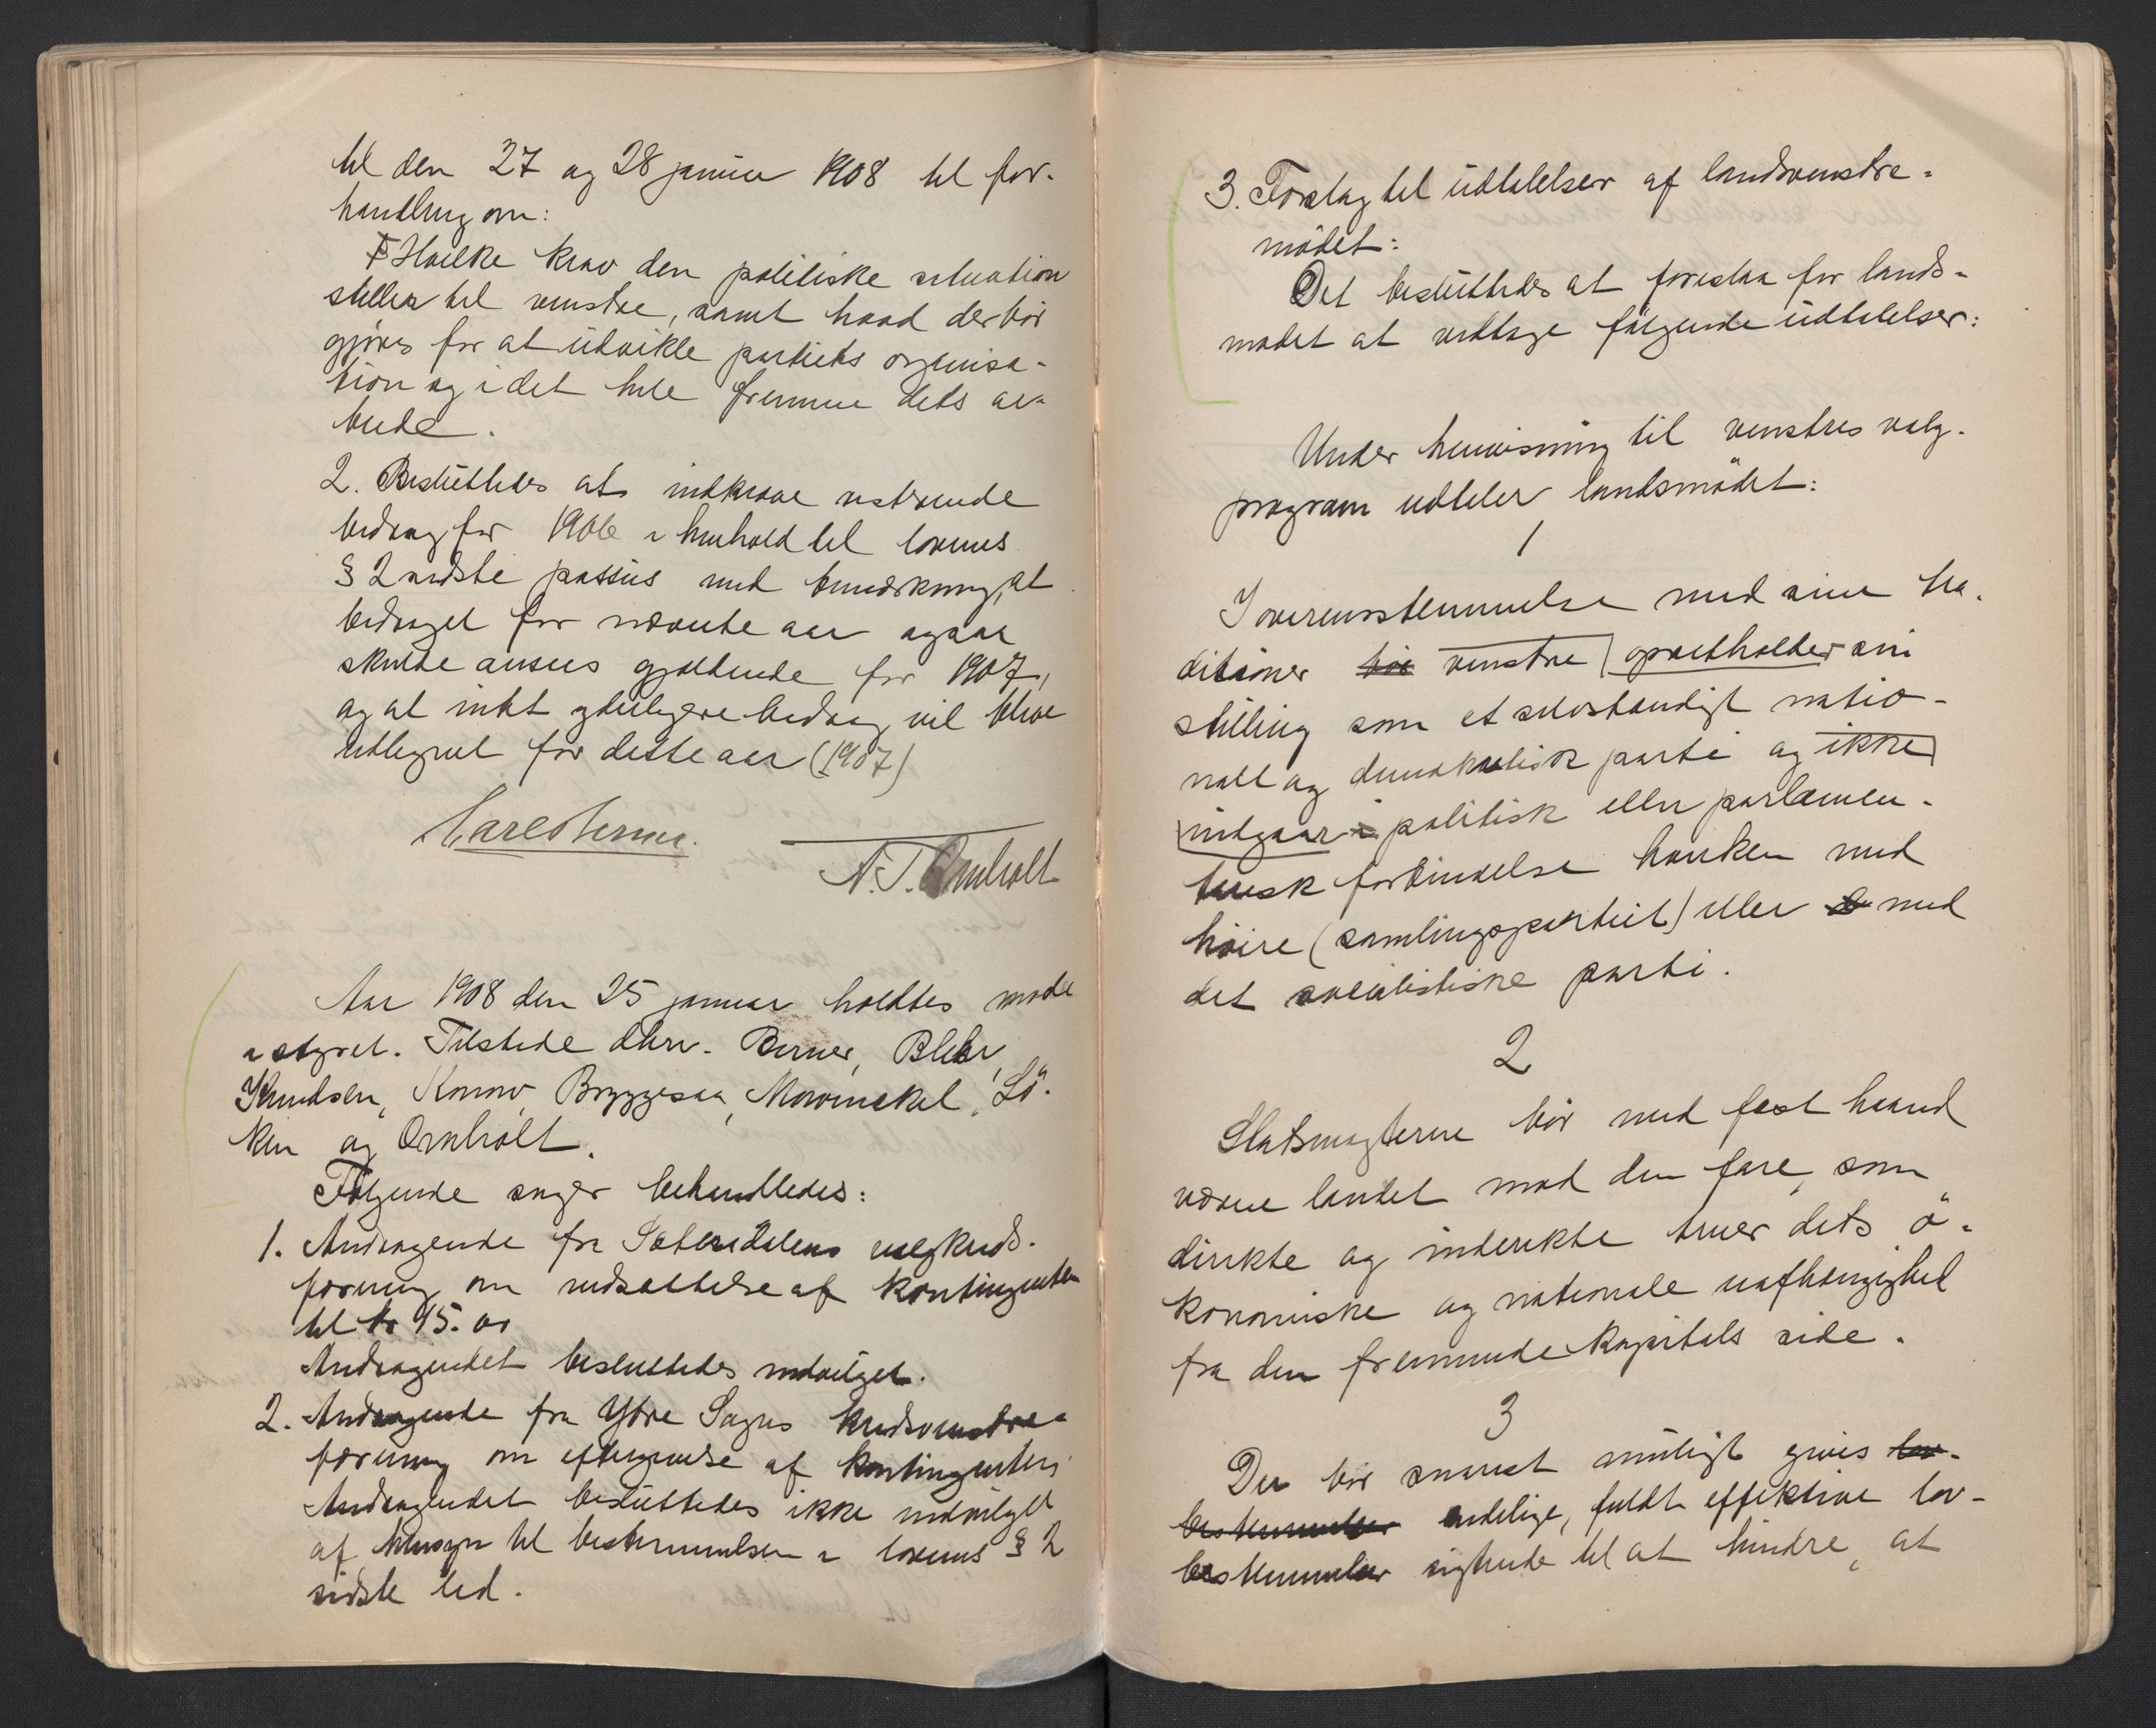 til den 27 og 28 januar 1908 til for-
handling om:
Hvilke krav den politiske situation
stiller til venstre, samt hvad der bør
gjøres for at udvikle partiets organisa-
tion og i det hele fremme dets ar-
beide.
2. Besluttedes at indkræve resterende
bidrag for 1906 i henhold til lovens
§ 2 sidste passus med bemærkning, at
bidraget for nævnte aar ogsaa
skulde ansees gjældende for 1907,
og at intet yderligere bidrag vil blive
udlignet for dette aar (1907)
Carl Berner.
N. J. Omholt
Aar 1908 den 25 januar holdtes møde
i styret. Tilstede dhrr. Berner, Blehr,
Knudsen, Konow, Bryggesaa, Mowinckel, Lö-
ken og Omholt.
Følgende sager behandledes:
1. Andragende fra Sætersdalens valgkreds-
forening om nedsættelse af kontingenten
til kr 15.00
Andragendet besluttedes indvilget.
2. Andragende fra Ytre Sogns kredsvenstre-
forening om eftergivelse af kontingenten
Andragendet besluttedes ikke indvilget
af hensyn til bestemmelsen i lovens § 2
sidste led.
3. Forslag til udtalelser af landsvenstre-
mødet:
Det besluttedes at foreslaa for lands-
mødet at vedtage følgende udtalelser:
Under henvisning til venstres valg-
program udtaler landsmødet:
1
I overensstemmelse med sine tra-
ditioner bör venstre opretholder sin
stilling som et selvstændigt natio-
nalt og demokratisk parti og ikke
indgaar i politisk eller parlamen-
tarisk forbindelse hverken med
høire (samlingspartiet) eller med
det socialistiske parti.
2
Statsmagterne bör med fast haand
værne landet mod den fare, som
direkte og inderekte truer dets ö-
konomiske og nationale uafhængighed
fra den fremmede kapitals side.
3
Der bör snarest muligt gives lov-
bestemmelser endelige, fuldt effektive lov-
bestemmelser sigtende til at hindre, at